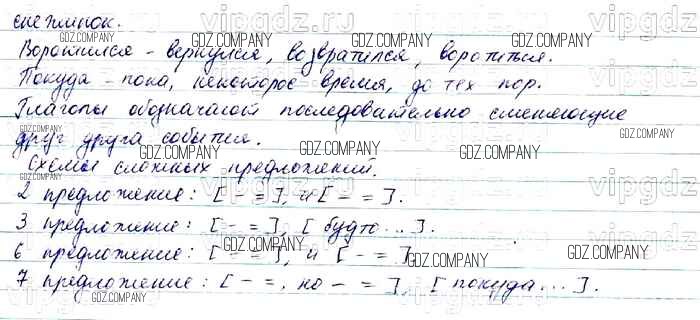 снежинок.
Воротился - вернулся, возвратился, воротиться.
Покуда - пока, некоторое время, до тех пор.
Глаголы обозначают последовательно сменяющие
друг друга события.
Схемы сложных предложений.
2 предложение: [ - = ], и [ - = ].
3 предложение: [ - = ], [ будто... ].
6 предложение: [ - = ], и [ - = ]
7 предложение: [ - =, но - = ], [ покуда... ].
vipgdz.ru
GDZ.COMPANY